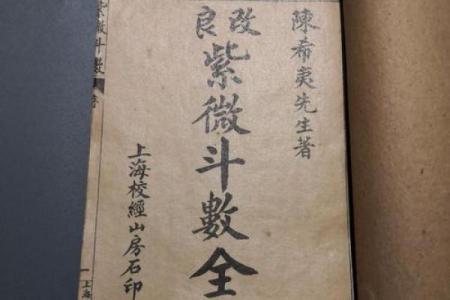 陳希夷先生著
改良
紫微斗數全
上海校經山房石印
紫微斗數